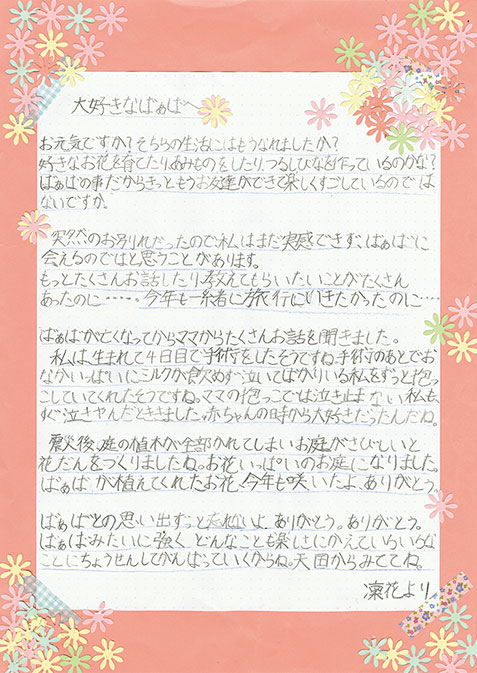 大好きなばぁばへ
お元気ですか？そちらの生活にはもうなれましたか？
好きなお花を育てたり、あみものをしたり、つるしびなを作っているのかな？
ばぁばの事だからきっともうお友達ができて楽しくすごしているのでは
ないですか。
突然のお別れだったので私はまだ実感できず、ばぁばに
会えるのではと思うことがあります。
もっとたくさんお話したり教えてもらいたいことがたくさん
あったのに……。今年も一緒に旅行にいきたかったのに…
ばぁばが亡くなってからママからたくさんお話を聞きました。
私は生まれて4日目で手術をしたそうですね。手術のあとでお
なかいっぱいにミルクが飲めず泣いてばかりいる私をずっと抱っ
こしていてくれたそうですね。ママの抱っこでは泣き止まない私も、
すぐ泣きやんだとききました。赤ちゃんの時から大好きだったんだね。
震災後、庭の植木が全部かれてしまいお庭がさびしいと
花だんをつくりましたね。お花いっぱいのお庭になりました。
ばぁばが植えてくれたお花、今年も咲いたよ、ありがとう
ばぁばとの思い出ずっと忘れないよ。ありがとう。ありがとう。
ばぁばみたいに強く、どんなことも楽しさにかえていろいろな
ことにちょうせんしてがんばっていくからね。天国からみててね。
凜花より